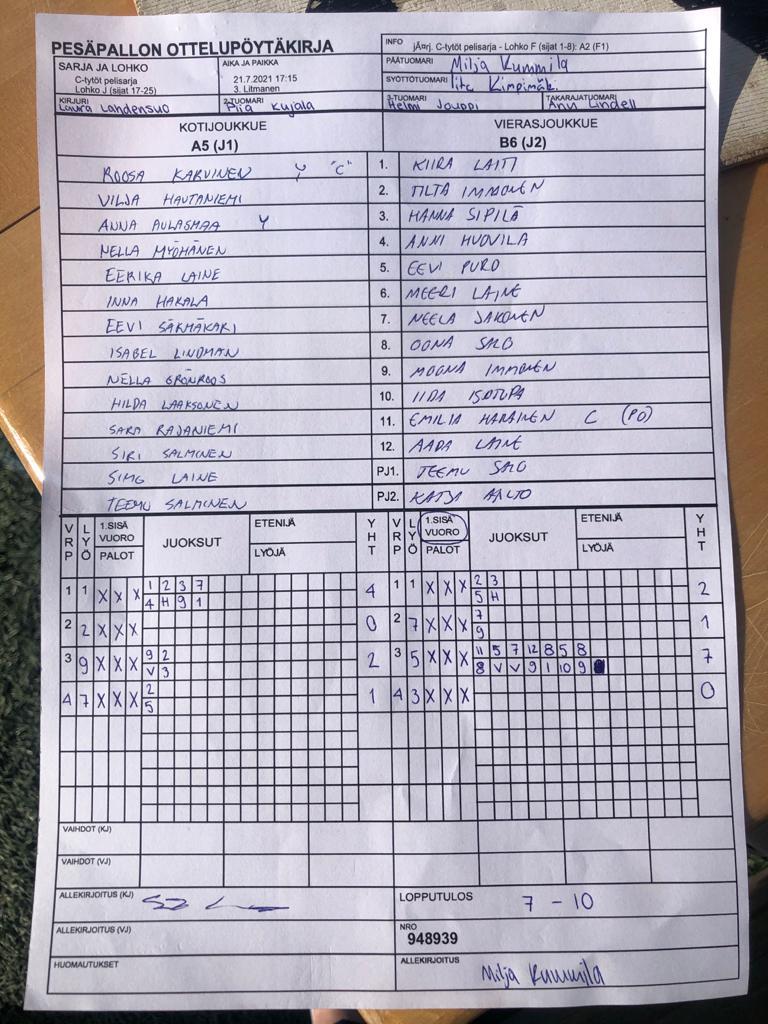 PESÄPALLON OTTELUPÖYTÄKIRJA
INFO jÃ¤rj. C-tytöt pelisarja - Lohko F (sijat 1-8): A2 (F1)
SARJA JA LOHKO
C-tytöt pelisarja
Lohko J (sijat 17-25)
AIKA JA PAIKKA
21.7.2021 17:15
3. Litmanen
PÄÄTUOMARI Milja Kummila
SYÖTTÖTUOMARI Kimpimäki
KIRJURI Laura Lahdensuo
2-TUOMARI Piia Kujala
3-TUOMARI Helmi Jouppi
TAKARAJATUOMARI Anvi Lindell
KOTIJOUKKUE VIERASJOUKKUE
A5 (J1) B6 (J2)
ROOSA KARVINEN Y "C" 1. KIIRA LAITI
VILJA HAUTANIEMI 2. TILTA IMMONEN
ANNA AULASMAA Y 3. HANNA SIPILÄ
NELLA MYÖHÄNEN 4. ANNI HUOVILA
EERIKA LAINE 5. EEVI PURO
INNA HAKALA 6. MEERI LAINE
EEVI SÄRMÄKARI 7. NEELA SAKONEN
ISABEL LINDMAN 8. OONA SALO
NELLA GRÖNROOS 9. MOONA IMMONEN
HILDA LAAKSONEN 10. IIDA ISOTUPA
SARA RAJANIEMI 11. EMILIA HARAINEN C (PO)
SIRI SALMINEN 12. AADA LAINE
SIMO LAINE PJ1. TEEMU SALO
TEEMU SALMINEN PJ2. KATJA AALTO
VRP LYÖ 1.SISÄ VUORO PALOT JUOKSUT ETENIJÄ LYÖJÄ YHT VRP LYÖ 1.SISÄ VUORO PALOT JUOKSUT ETENIJÄ LYÖJÄ YHT
1 1 X X X 1 2 3 7 4 1 1 X X X 2 3 2
4 H 9 1 5 H
2 2 X X X 0 2 7 X X X 7 1
9
3 9 X X X 9 2 2 3 5 X X X 11 5 7 12 8 5 8 7
V 3 8 V V 9 1 10 9
4 7 X X X 2 1 4 3 X X X 0
5
VAIHDOT (KJ)
VAIHDOT (VJ)
ALLEKIRJOITUS (KJ) LOPPUTULOS 7 - 10
ALLEKIRJOITUS (VJ) NRO
948939
HUOMAUTUKSET ALLEKIRJOITUS Milja Kummila